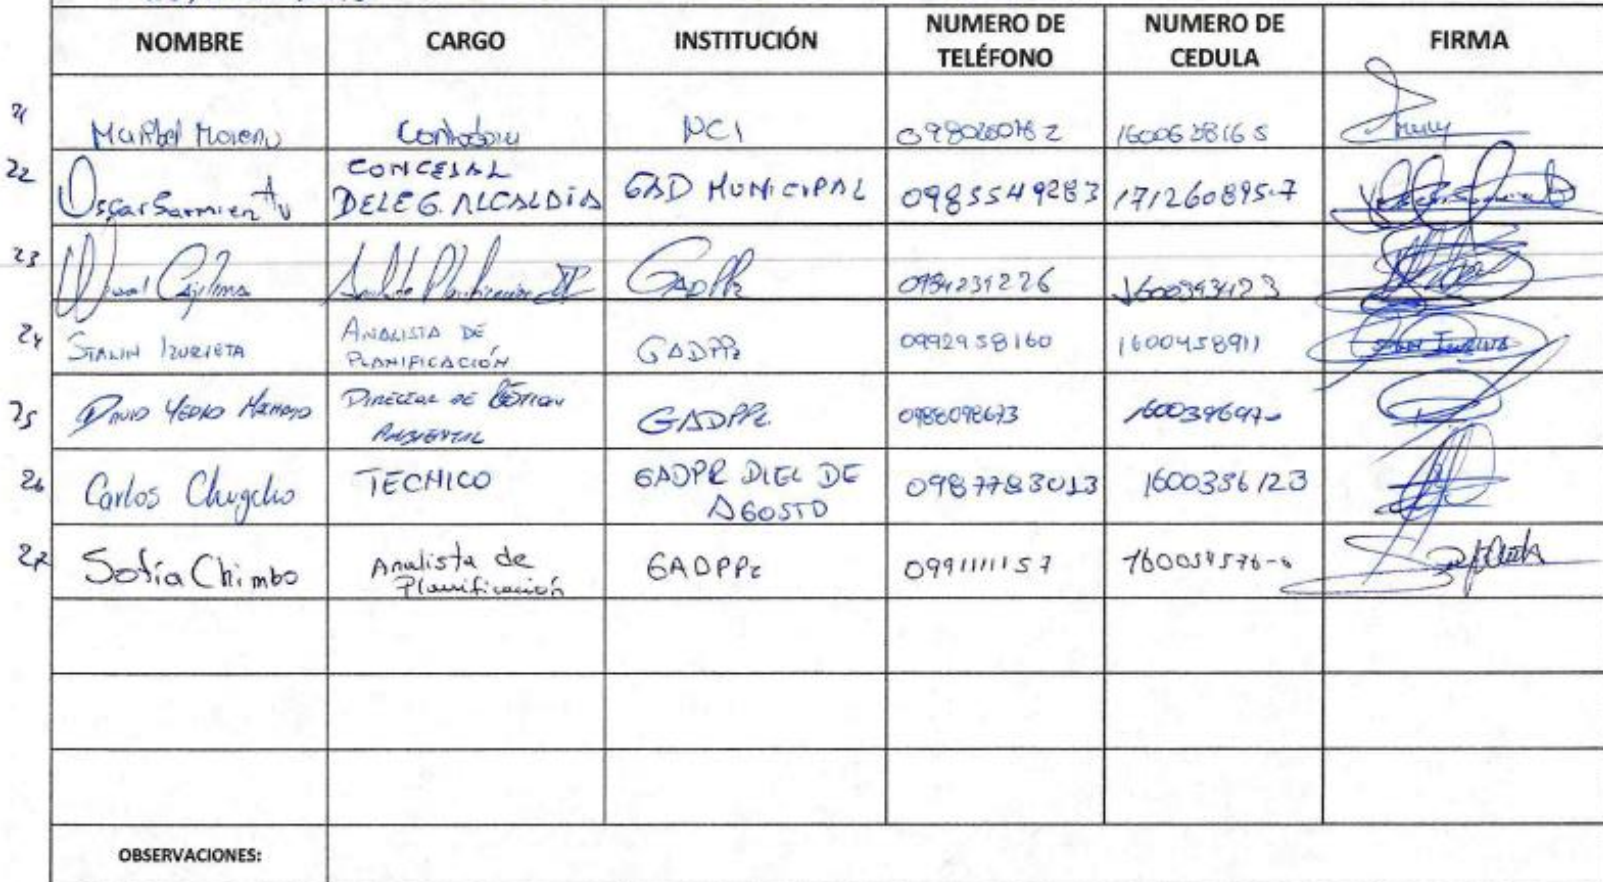 NOMBRE CARGO INSTITUCIÓN NUMERO DE TELÉFONO NUMERO DE CEDULA FIRMA
21 Maribel Moreno Contadora NCI 1600628165
22 Oscar Sarmiento CONCEJAL
DELEG. ALCALDÍA GAD MUNICIPAL 0985549283 171260895-7
23 GADPPz 0984231226 1600393423
24 STALIN IZURIETA ANALISTA DE
PLANIFICACIÓN GADPPz 0992958160 1600458911
25 DAVID YEDRO DIRECTOR DE GESTION
AMBIENTAL GADPPz. 0988098673
26 Carlos Chugcho TECNICO GADPR DIEZ DE
AGOSTO 0987783013 1600336123
27 Sofía Chimbo Analista de
Planificación GADPPz 0991111157
OBSERVACIONES: